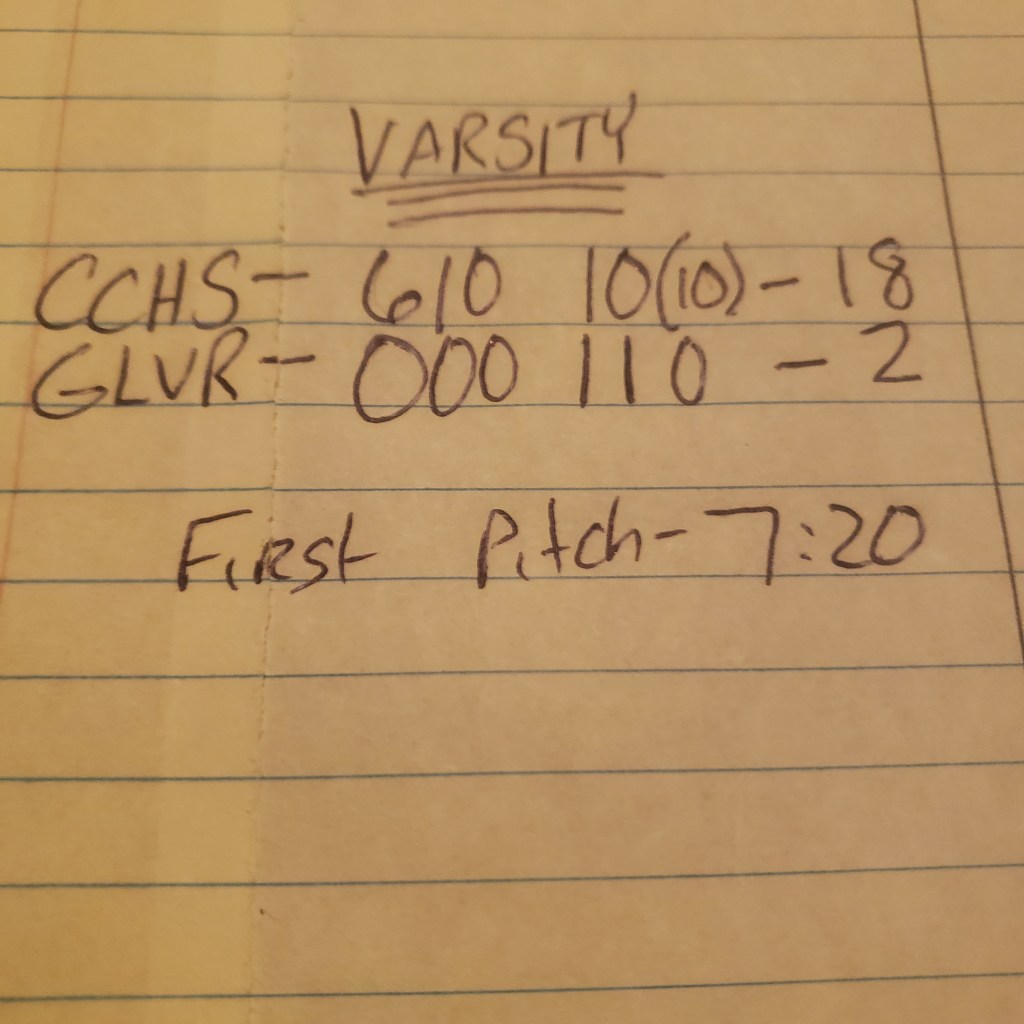 VARSITY
CCHS- 610 10(10)-18
GLVR- 000 110 -2
First Pitch-7:20